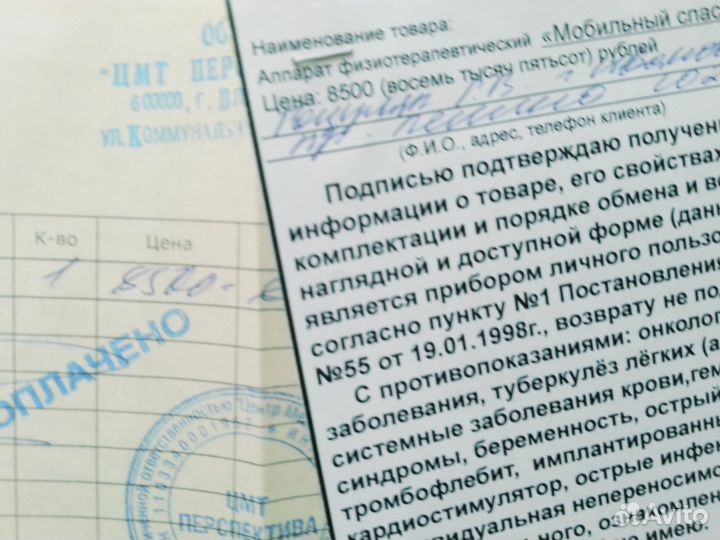 ОБ
"ЦМТ ПЕР
600000, г. ВЛ
УЛ.КОММУНАЛЬ
К-во
Цена
1
8500-
ОПЛАЧЕНО
ЦМТ
ПЕРСПЕКТИВА
Наименование товара:
Аппарат физиотерапевтический «Мобильный спас
Цена: 8500 (восемь тысяч пятьсот) рублей
(Ф.И.О., адрес, телефон клиента)
Подписью подтверждаю получени
информации о товаре, его свойствах
комплектации и порядке обмена и во
наглядной и доступной форме (дан
является прибором личного пользо
согласно пункту №1 Постановления
№55 от 19.01.1998г., возврату не по
С противопоказаниями: онколог
заболевания, туберкулёз лёгких (а
системные заболевания крови,гем
синдромы, беременность, острый
тромбофлебит, имплантированны
кардиостимулятор, острые инфе
видуальная непереносимо
ного, ознакомлен
не имею.
Avito